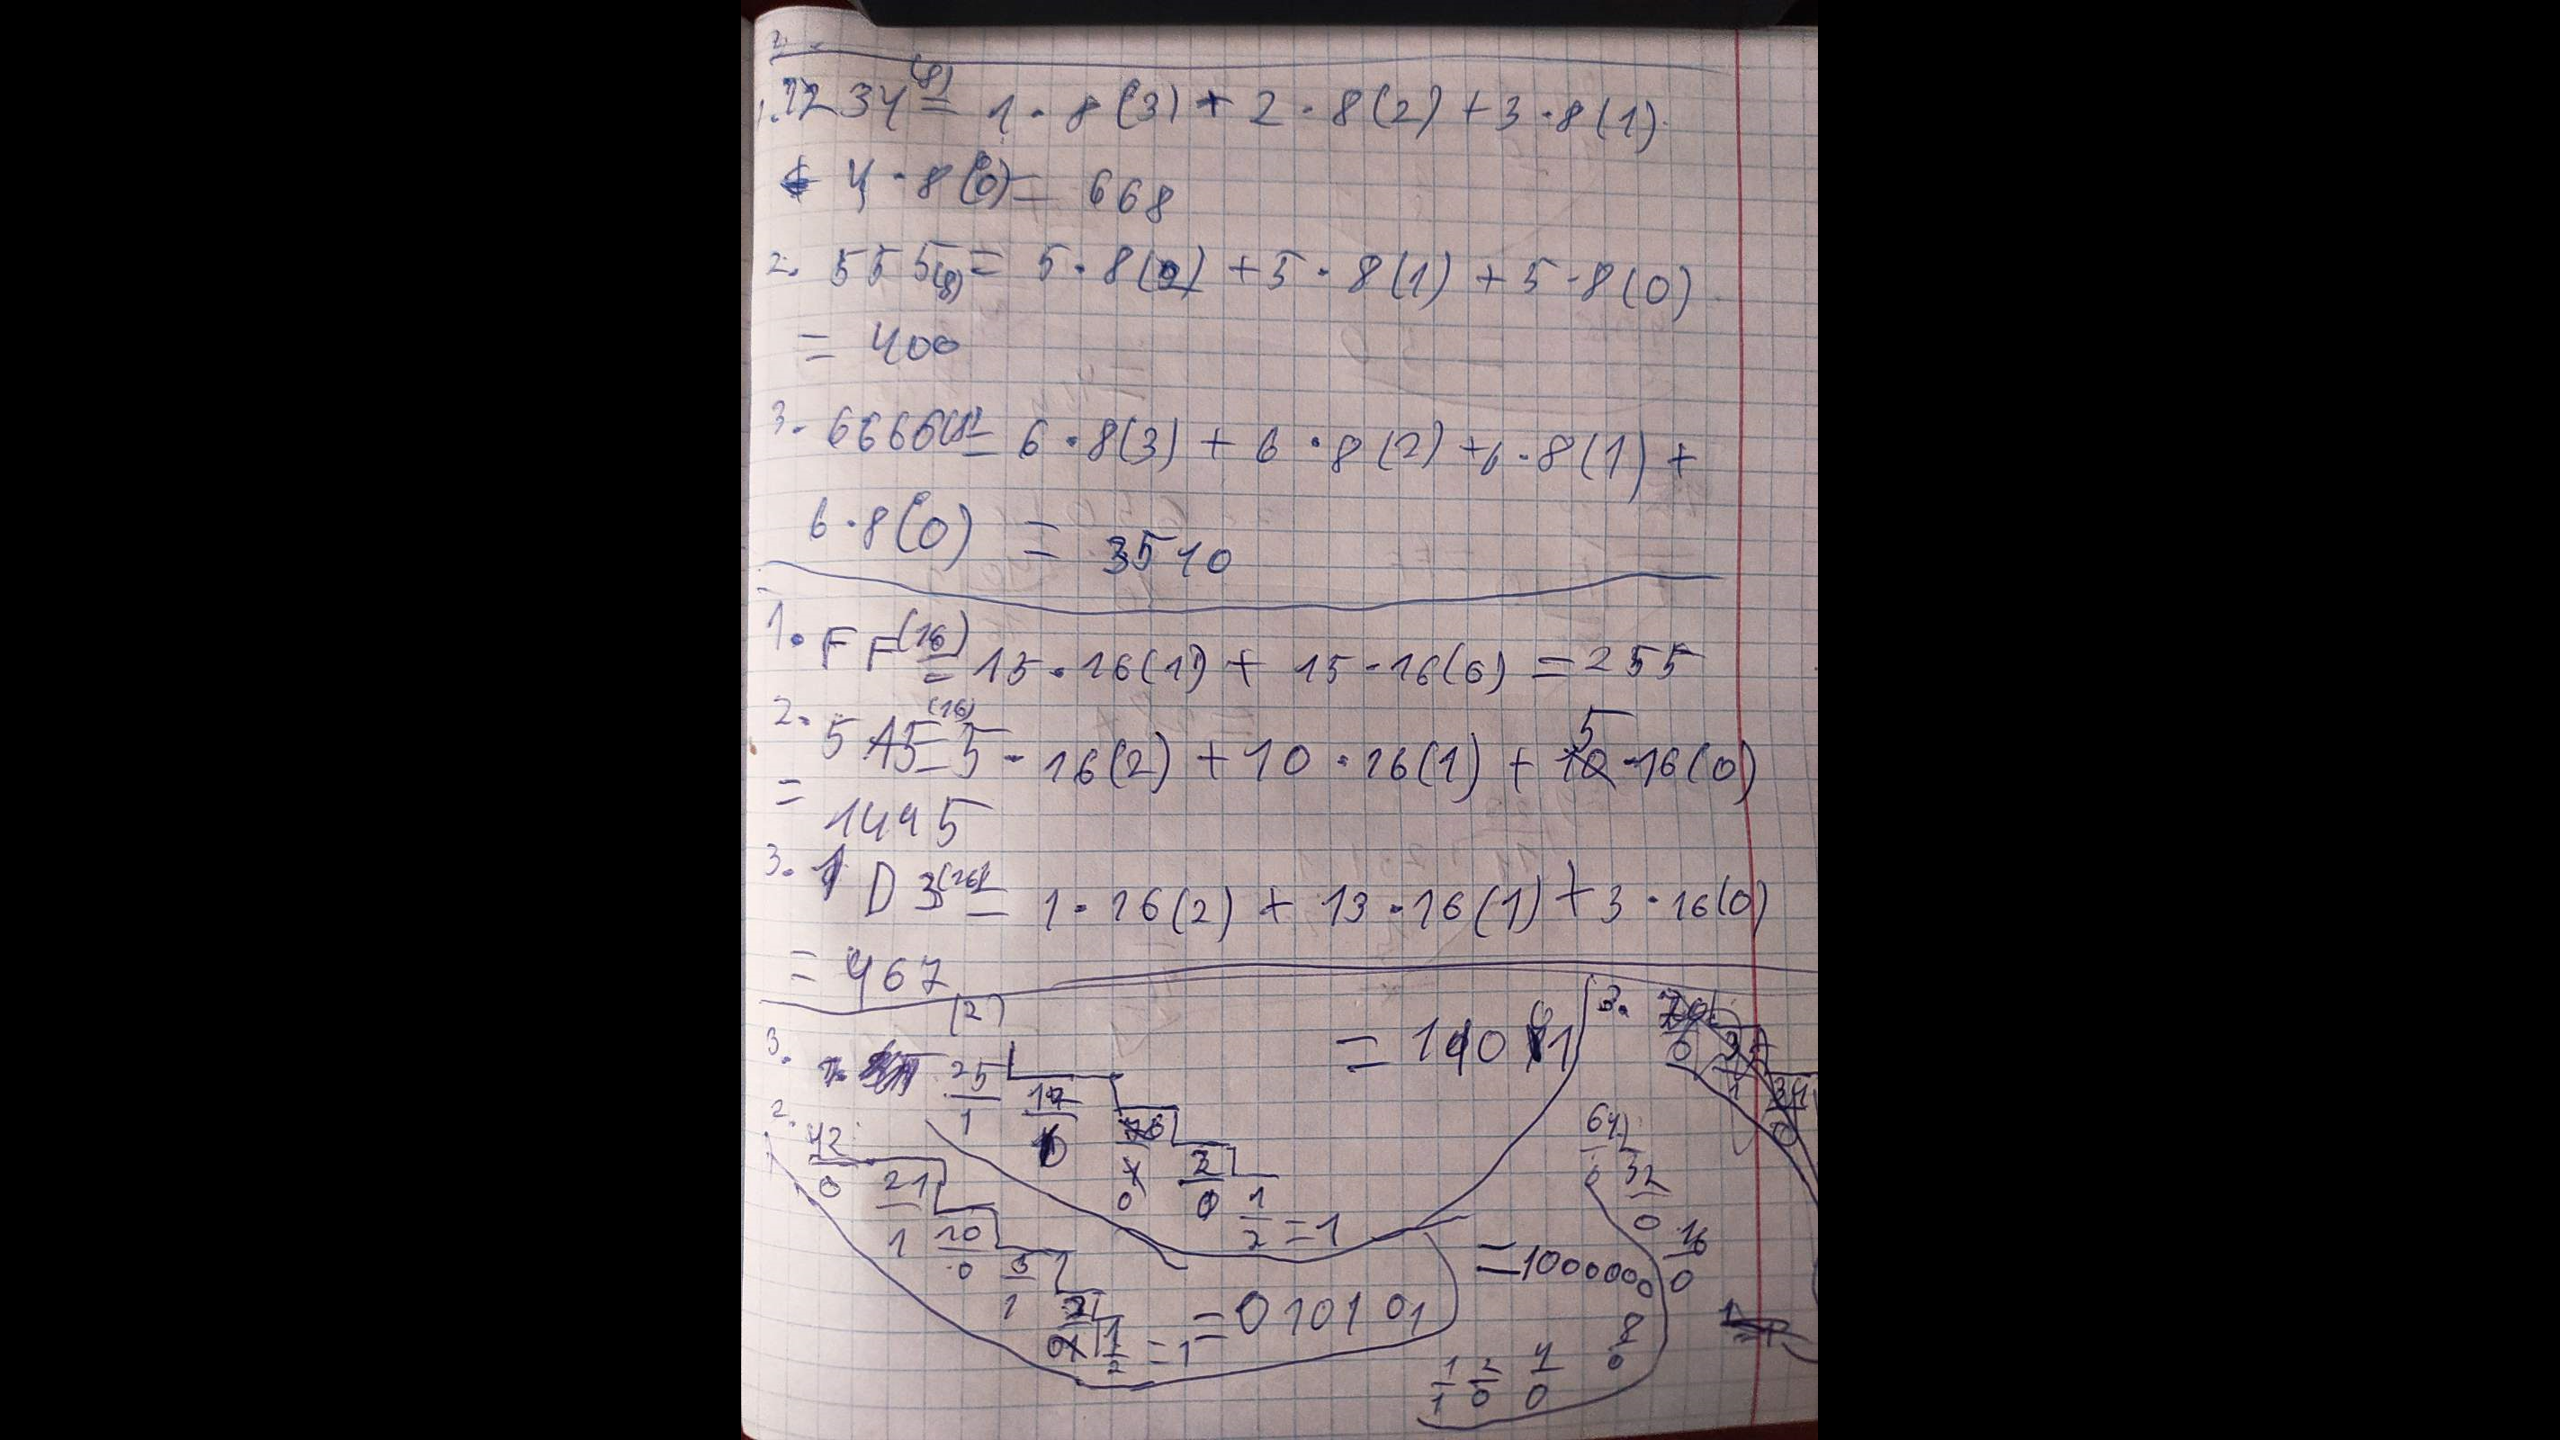 1. 1234(8) = 1 · 8(3) + 2 · 8(2) + 3 · 8(1)
+ 4 · 8(0) = 668
2. 555(8) = 5 · 8(2) + 5 · 8(1) + 5 · 8(0)
= 400
3. 6666(8) = 6 · 8(3) + 6 · 8(2) + 6 · 8(1) +
6 · 8(0) = 3510
1. FF(16) = 15 · 16(1) + 15 · 16(0) = 255
2. 5A5(16) = 5 · 16(2) + 10 · 16(1) + 5 · 16(0)
= 1445
3. 1D3(16) = 1 · 16(2) + 13 · 16(1) + 3 · 16(0)
= 467
(2)
3. 25
1
12
0
6
0
3
1
2 = 1
= 11001
2. 42
0
21
1
10
0
5
1
2
0
1
2 = 1
= 010101
3.
64
0
32
0
16
0
8
0
4
0
2
0
1
1
= 1000000